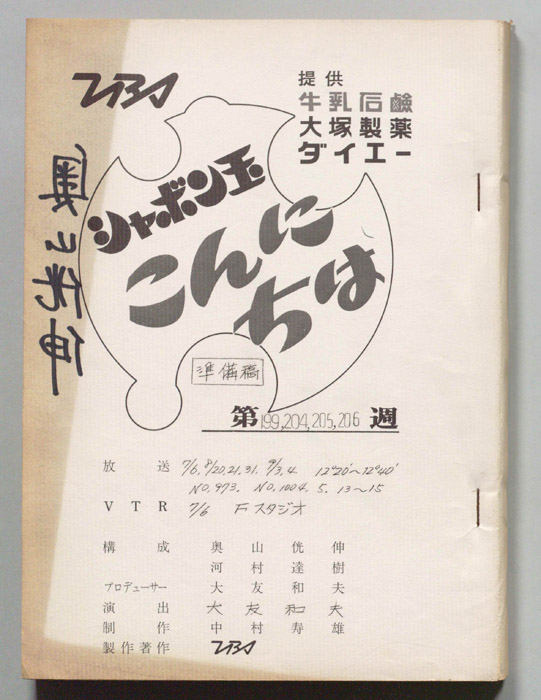 TBS
提供
牛乳石鹸
大塚製薬
ダイエー
奥山侊伸
シャボン玉
こんに
ちは
準備稿
第199,204,205,206週
放送 7/6, 8/20,21,31. 9/3,4. 12°20'〜12°40'
NO.973. NO.1004. 5. 13〜15
VTR 7/6 Fスタジオ
構成 奥山侊伸
河村達樹
プロデューサー 大友和夫
演出 大友和夫
制作 中村寿雄
製作著作 TBS